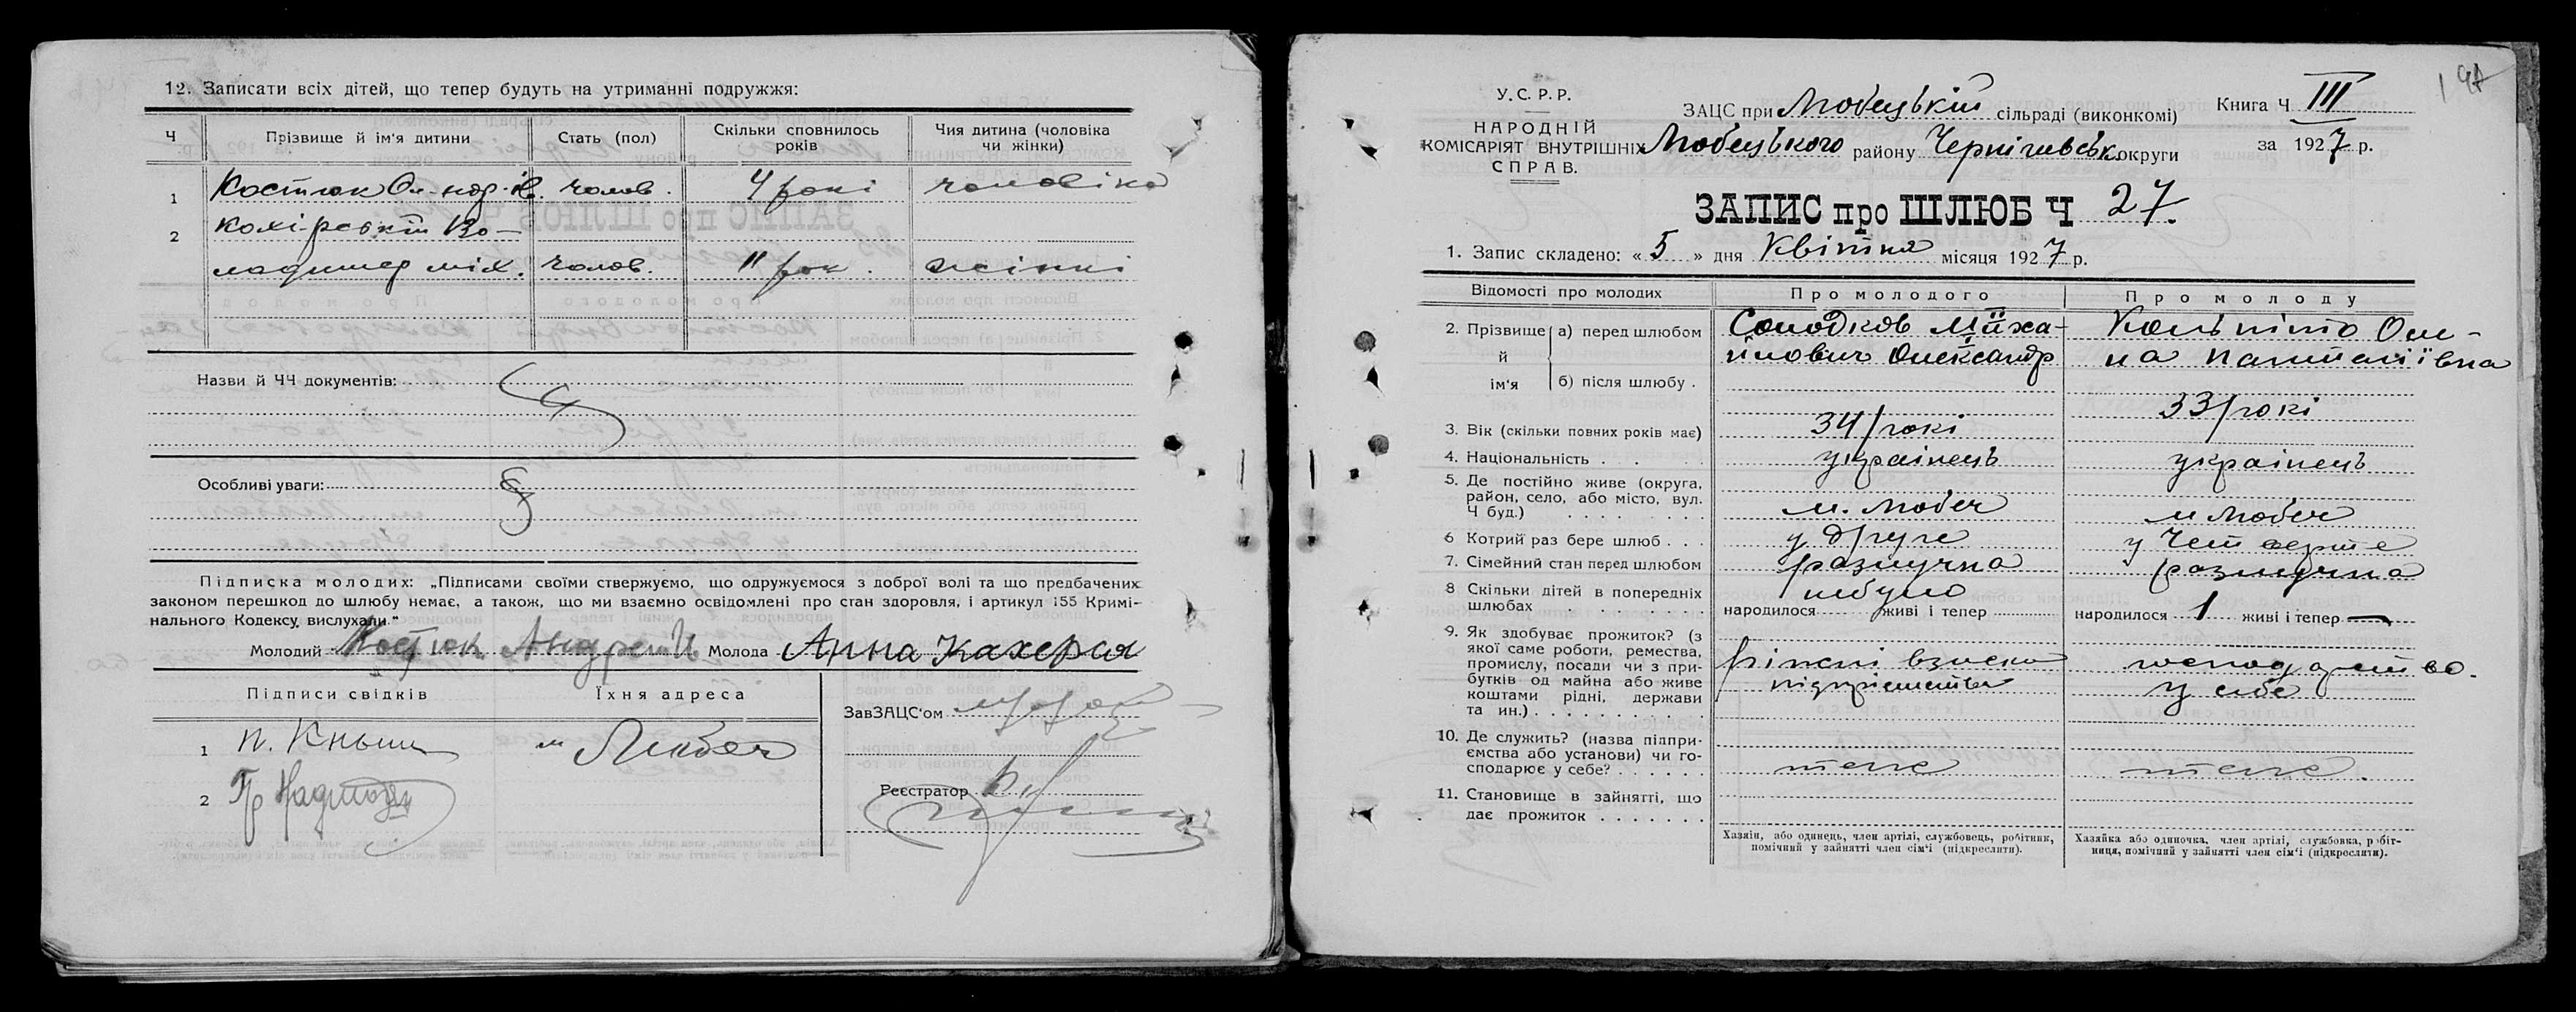 12. Записати всіх дітей, що тепер будуть на утриманні подружжя:
Ч Прізвище й ім'я дитини Стать (пол) Скільки сповнилось років Чия дитина (чоловіка чи жінки)
1 Костюк чолов. 4 рокі чоловіка
2
міх. чолов. 11 рок. жінкі
Назви й ЧЧ документів:
Особливі уваги:
Підписка молодих: „Підписами своїми ствержуємо, що одружуємося з доброї волі та що предбачених
законом перешкод до шлюбу немає, а також, що ми взаємно освідомлені про стан здоровля, і артикул 155 Кримі-
нального Кодексу вислухали."
Молодий Костюк Андрей Молода Анна
Підписи свідків Їхня адреса
ЗавЗАЦС'ом
1 м Любеч
2
Реєстратор
197
У.С.Р.Р.
НАРОДНІЙ
КОМІСАРІЯТ ВНУТРІШНІХ
СПРАВ.
ЗАЦС при Любецькій сільраді (виконкомі)
Любецького району Чернігивськ округи
Книга Ч III
за 1927 р.
ЗАПИС про ШЛЮБ Ч 27.
1. Запис складено: « 5 » дня Квітня місяця 1927 р.
Відомості про молодих Про молодого Про молоду
2. Прізвище й ім'я а) перед шлюбом Солодков Міха-
йлович Олександр
Пантеліївна
б) після шлюбу .
3. Вік (скільки повних років має) 34 рокі 33 рокі
4. Національність . . українець українець
5. Де постійно живе (округа,
район, село, або місто, вул.
Ч буд.) . . . . . . . м. Любеч м Любеч
6 Котрий раз бере шлюб . . . у друге у четверте
7. Сімейний стан перед шлюбом разлучна разлучна
8 Скільки дітей в попередніх
шлюбах . . . . . . . . небуло
народилося живі і тепер народилося 1 живі і тепер —
9. Як здобуває прожиток? (з
якої саме роботи, ремества,
промислу, посади чи з при-
бутків од майна або живе
коштами рідні, держави
та ин.) . . . . . . . . . .
господарство
у себе
10. Де служить? (назва підпри-
ємства або установи) чи го-
сподарює у себе? . . . . . . теж теж.
11. Становище в зайнятті, що
дає прожиток . . . . . . .
Хазяїн, або одинець, член артілі, службовець, робітник,
помічний у зайнятті член сім'ї (підкреслити).
Хазяйка або одиночка, член артілі, службовка, робіт-
ниця, помічний у зайнятті член сім'ї (підкреслити).